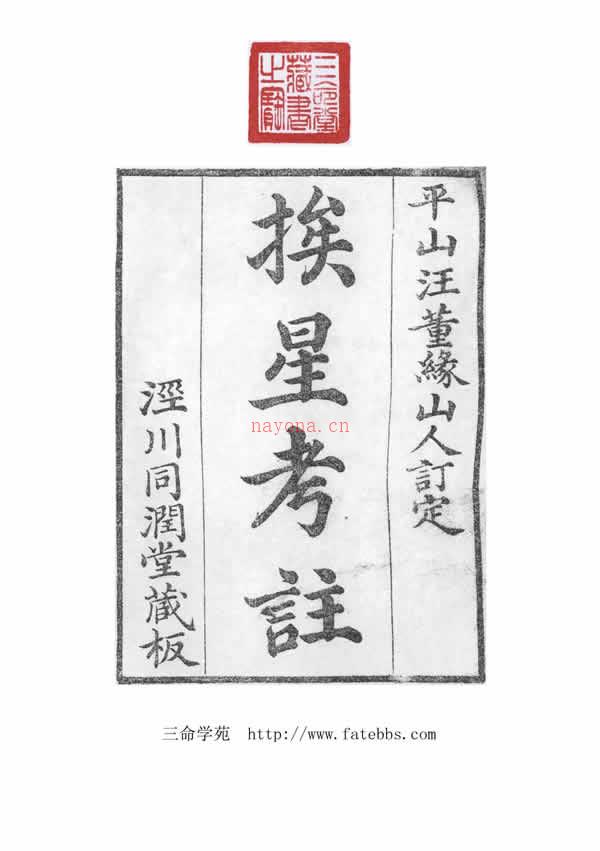 三命堂
藏書
之寶
平山汪董緣山人訂定
挨星考註
涇川同潤堂藏板
nayona.cn
三命学苑 http://www.fatebbs.com